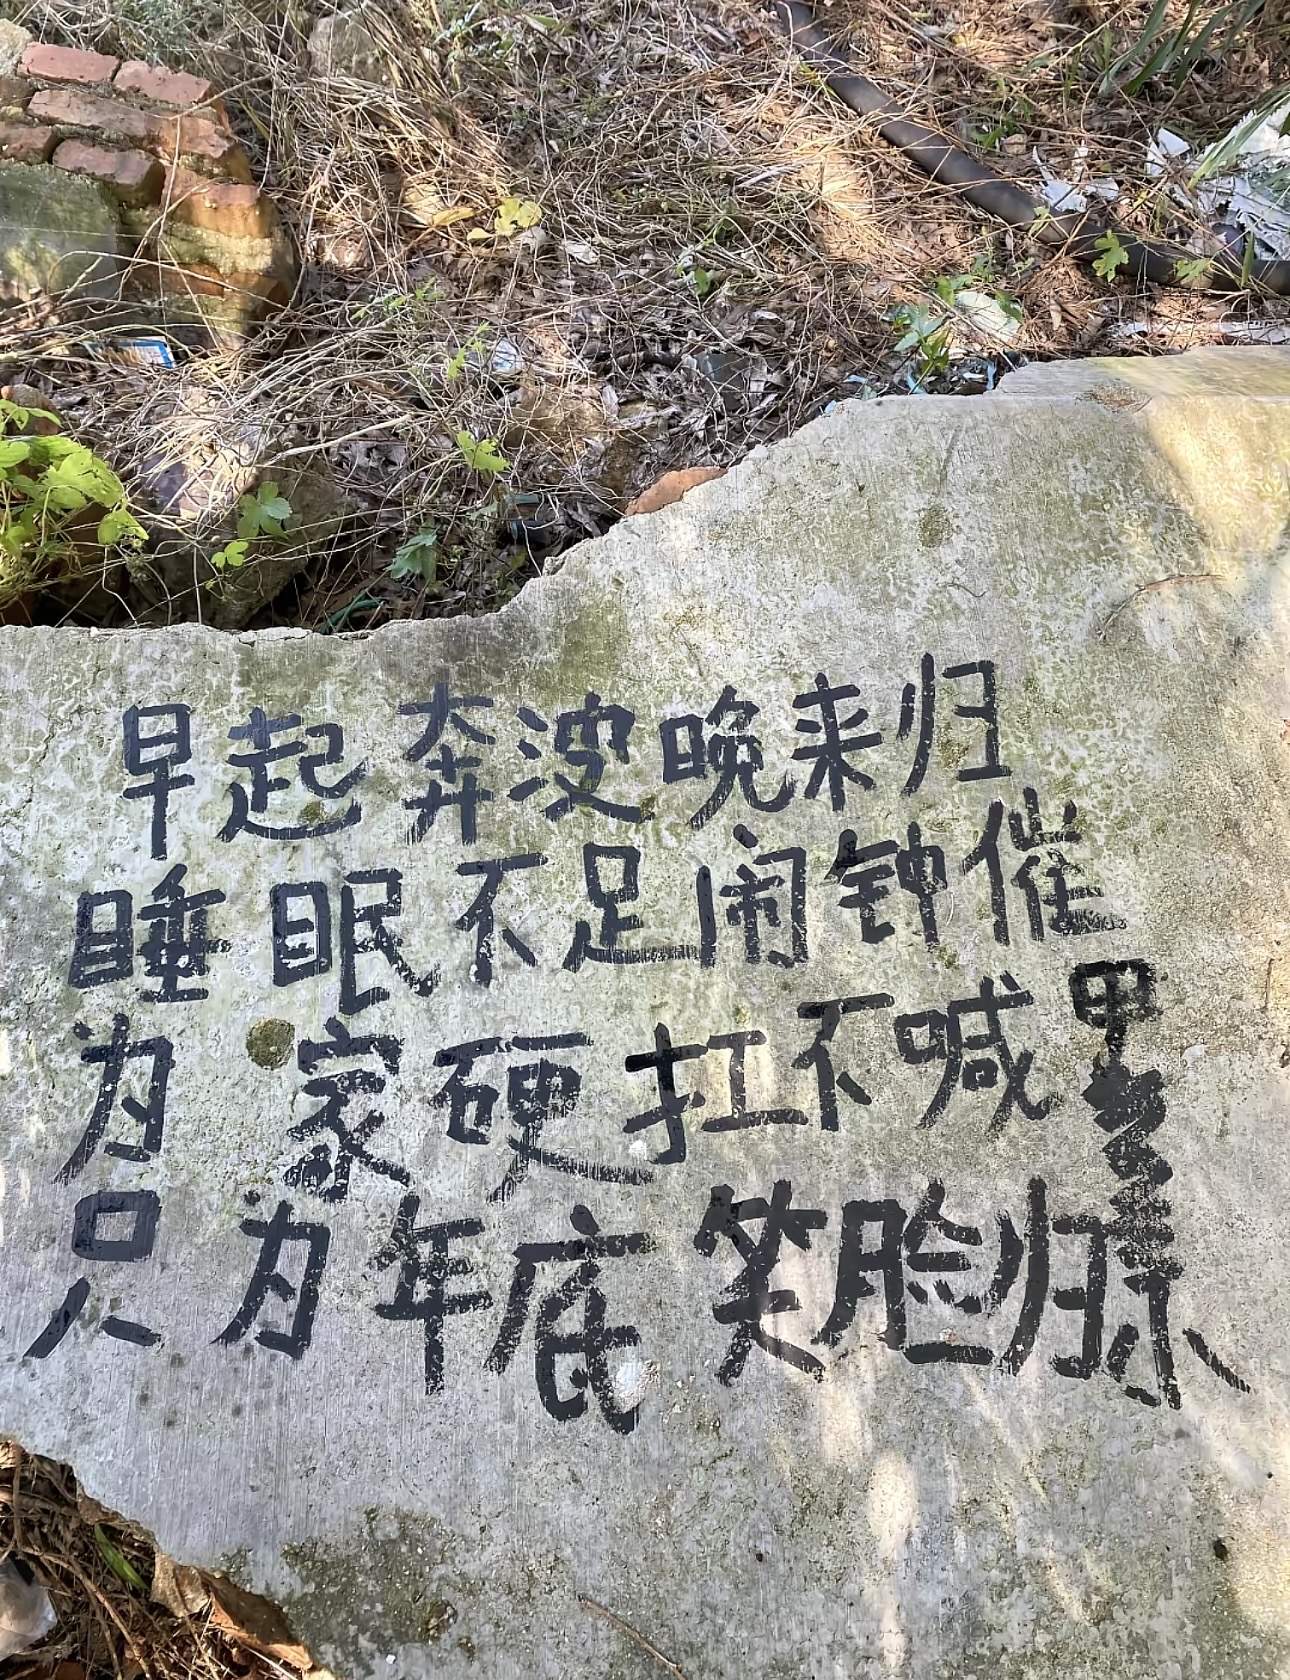 早起奔波晚来归
睡眠不足闹钟催
为家硬扛不喊累
只为年底笑脸归